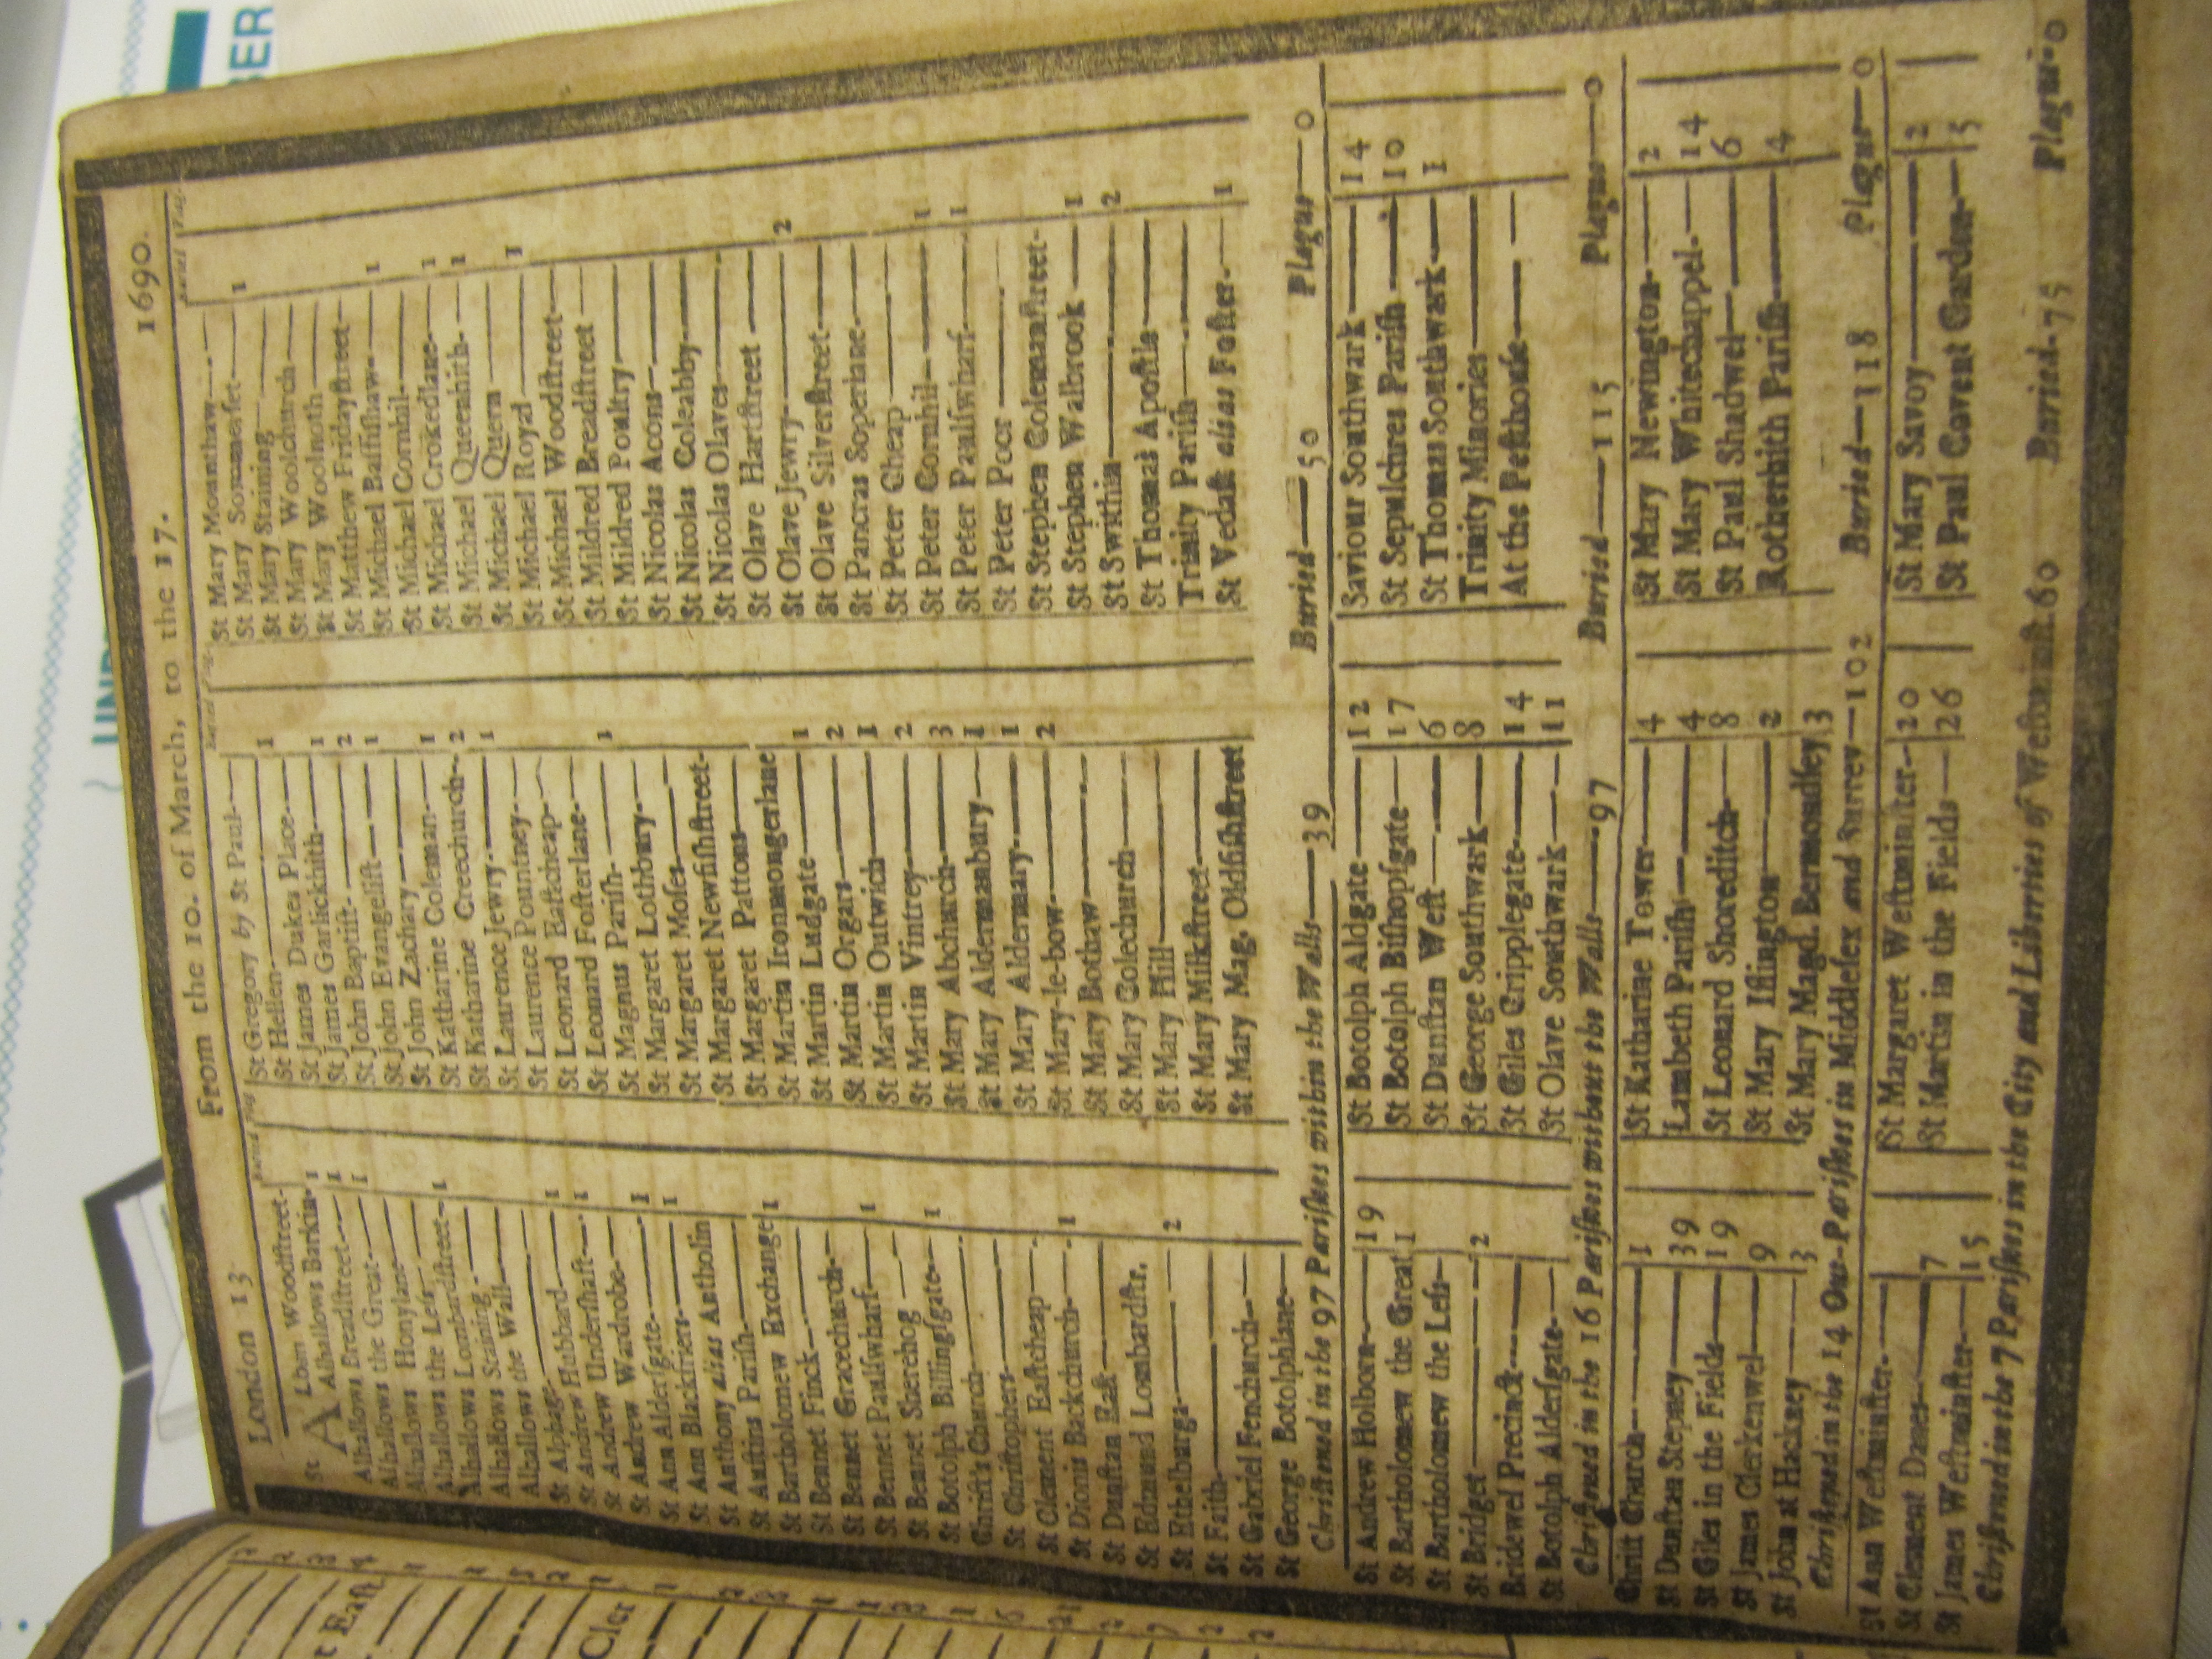 London 13
From the 10. of March, to the 17.
1690.
St ALban Woodſtreet
Alhallows Barking 1
Alhallows Breadſtreet 1
Alhallows the Great 1
Alhallows Honylane
Alhallows the Leſs
Alhallows Lombardſtreet 1
Alhallows Staining
Alhallows the Wall
St Alphage
St Andrew Hubbard 1
St Andrew Underſhaft 1
St Andrew Wardrobe
St Ann Alderſgate 1
St Ann Blackfriers 1
St Anthony alias Antholin
St Auſtins Pariſh
St Bartholomew Exchange 1
St Bennet Finck
St Bennet Gracechurch
St Bennet Paulſwharf 1
St Bennet Sherehog
St Botolph Billingſgate 1
Chriſt's Church
St Chriſtophers
St Clement Eaſtcheap
St Dionis Backchurch 1
St Dunſtan Eaſt
St Edmund Lombardſtr.
St Ethelburga 2
St Faith
St Gabriel Fenchurch
St George Botolphlane
Buried Plag
St Gregory by St Paul
St Hellen 1
St James Dukes Place
St James Garlickhith 1
St John Baptiſt 2
St John Evangeliſt 1
St John Zachary
St Katharine Coleman 1
St Katharine Creechurch 2
St Laurence Jewry 1
St Laurence Pountney
St Leonard Eaſtcheap
St Leonard Foſterlane
St Magnus Pariſh 1
St Margaret Lothbury
St Margaret Moſes
St Margaret Newfiſhſtreet
St Margaret Pattons
St Martin Ironmongerlane
St Martin Ludgate 1
St Martin Orgars 2
St Martin Outwich 1
St Martin Vintrey 2
St Mary Abchurch 3
St Mary Aldermanbury 1
St Mary Aldermary 1
St Mary-le-bow 2
St Mary Bothaw
St Mary Colechurch
St Mary Hill
St Mary Milkſtreet
St Mary Mag. Oldfiſhſtreet
Buried Plag
St Mary Mounthaw
St Mary Sommerſet 1
St Mary Staining
St Mary Woolchurch
St Mary Woolnoth
St Matthew Fridayſtreet
St Michael Baſſiſhaw 1
St Michael Cornhil
St Michael Crokedlane 1
St Michael Queenhith 1
St Michael Quern
St Michael Royal 1
St Michael Woodſtreet
St Mildred Breadſtreet
St Mildred Poultry
St Nicolas Acons
St Nicolas Coleabby
St Nicolas Olaves
St Olave Hartſtreet
St Olave Jewry 2
St Olave Silverſtreet
St Pancras Soperlane
St Peter Cheap
St Peter Cornhil 1
St Peter Paulſwharf 1
St Peter Poor
St Stephen Colemanſtreet
St Stephen Walbrook 1
St Swithin 2
St Thomas Apoſtle
Trinity Pariſh
St Vedaſt alias Foſter 1
Buried Plag
Chriſtned in the 97 Pariſhes within the Walls—39 Buried—50 Plague—0
St Andrew Holborn 19
St Bartholomew the Great 1
St Bartholomew the Leſs
St Bridget 2
Bridewel Precinct
St Botolph Alderſgate
St Botolph Aldgate 12
St Botolph Biſhopſgate 17
St Dunſtan Weſt 6
St George Southwark 8
St Giles Cripplegate 14
St Olave Southwark 11
Saviour Southwark 14
St Sepulchres Pariſh 10
St Thomas Southwark 1
Trinity Minories
At the Peſthouſe
Chriſtned in the 16 Pariſhes without the Walls—97 Buried—115 Plague—0
Chriſt Church 1
St Dunſtan Stepney 39
St Giles in the Fields 19
St James Clerkenwel 9
St John at Hackney 3
St Katharine Tower 4
Lambeth Pariſh 4
St Leonard Shoreditch 8
St Mary Iſlington 2
St Mary Magd. Bermondſey 3
St Mary Newington 2
St Mary Whitechappel 14
St Paul Shadwel 6
Rotherhith Pariſh 4
Chriſtned in the 14 Out-Pariſhes in Middleſex and Surrey—102 Buried—118 Plague—0
St Ann Weſtminſter
St Clement Danes 7
St James Weſtminſter 15
St Margaret Weſtminſter 20
St Martin in the Fields 26
St Mary Savoy 2
St Paul Covent Garden 5
Chriſtned in the 7 Pariſhes in the City and Liberties of Weſtminſt. 60 Buried 75 Plague 0